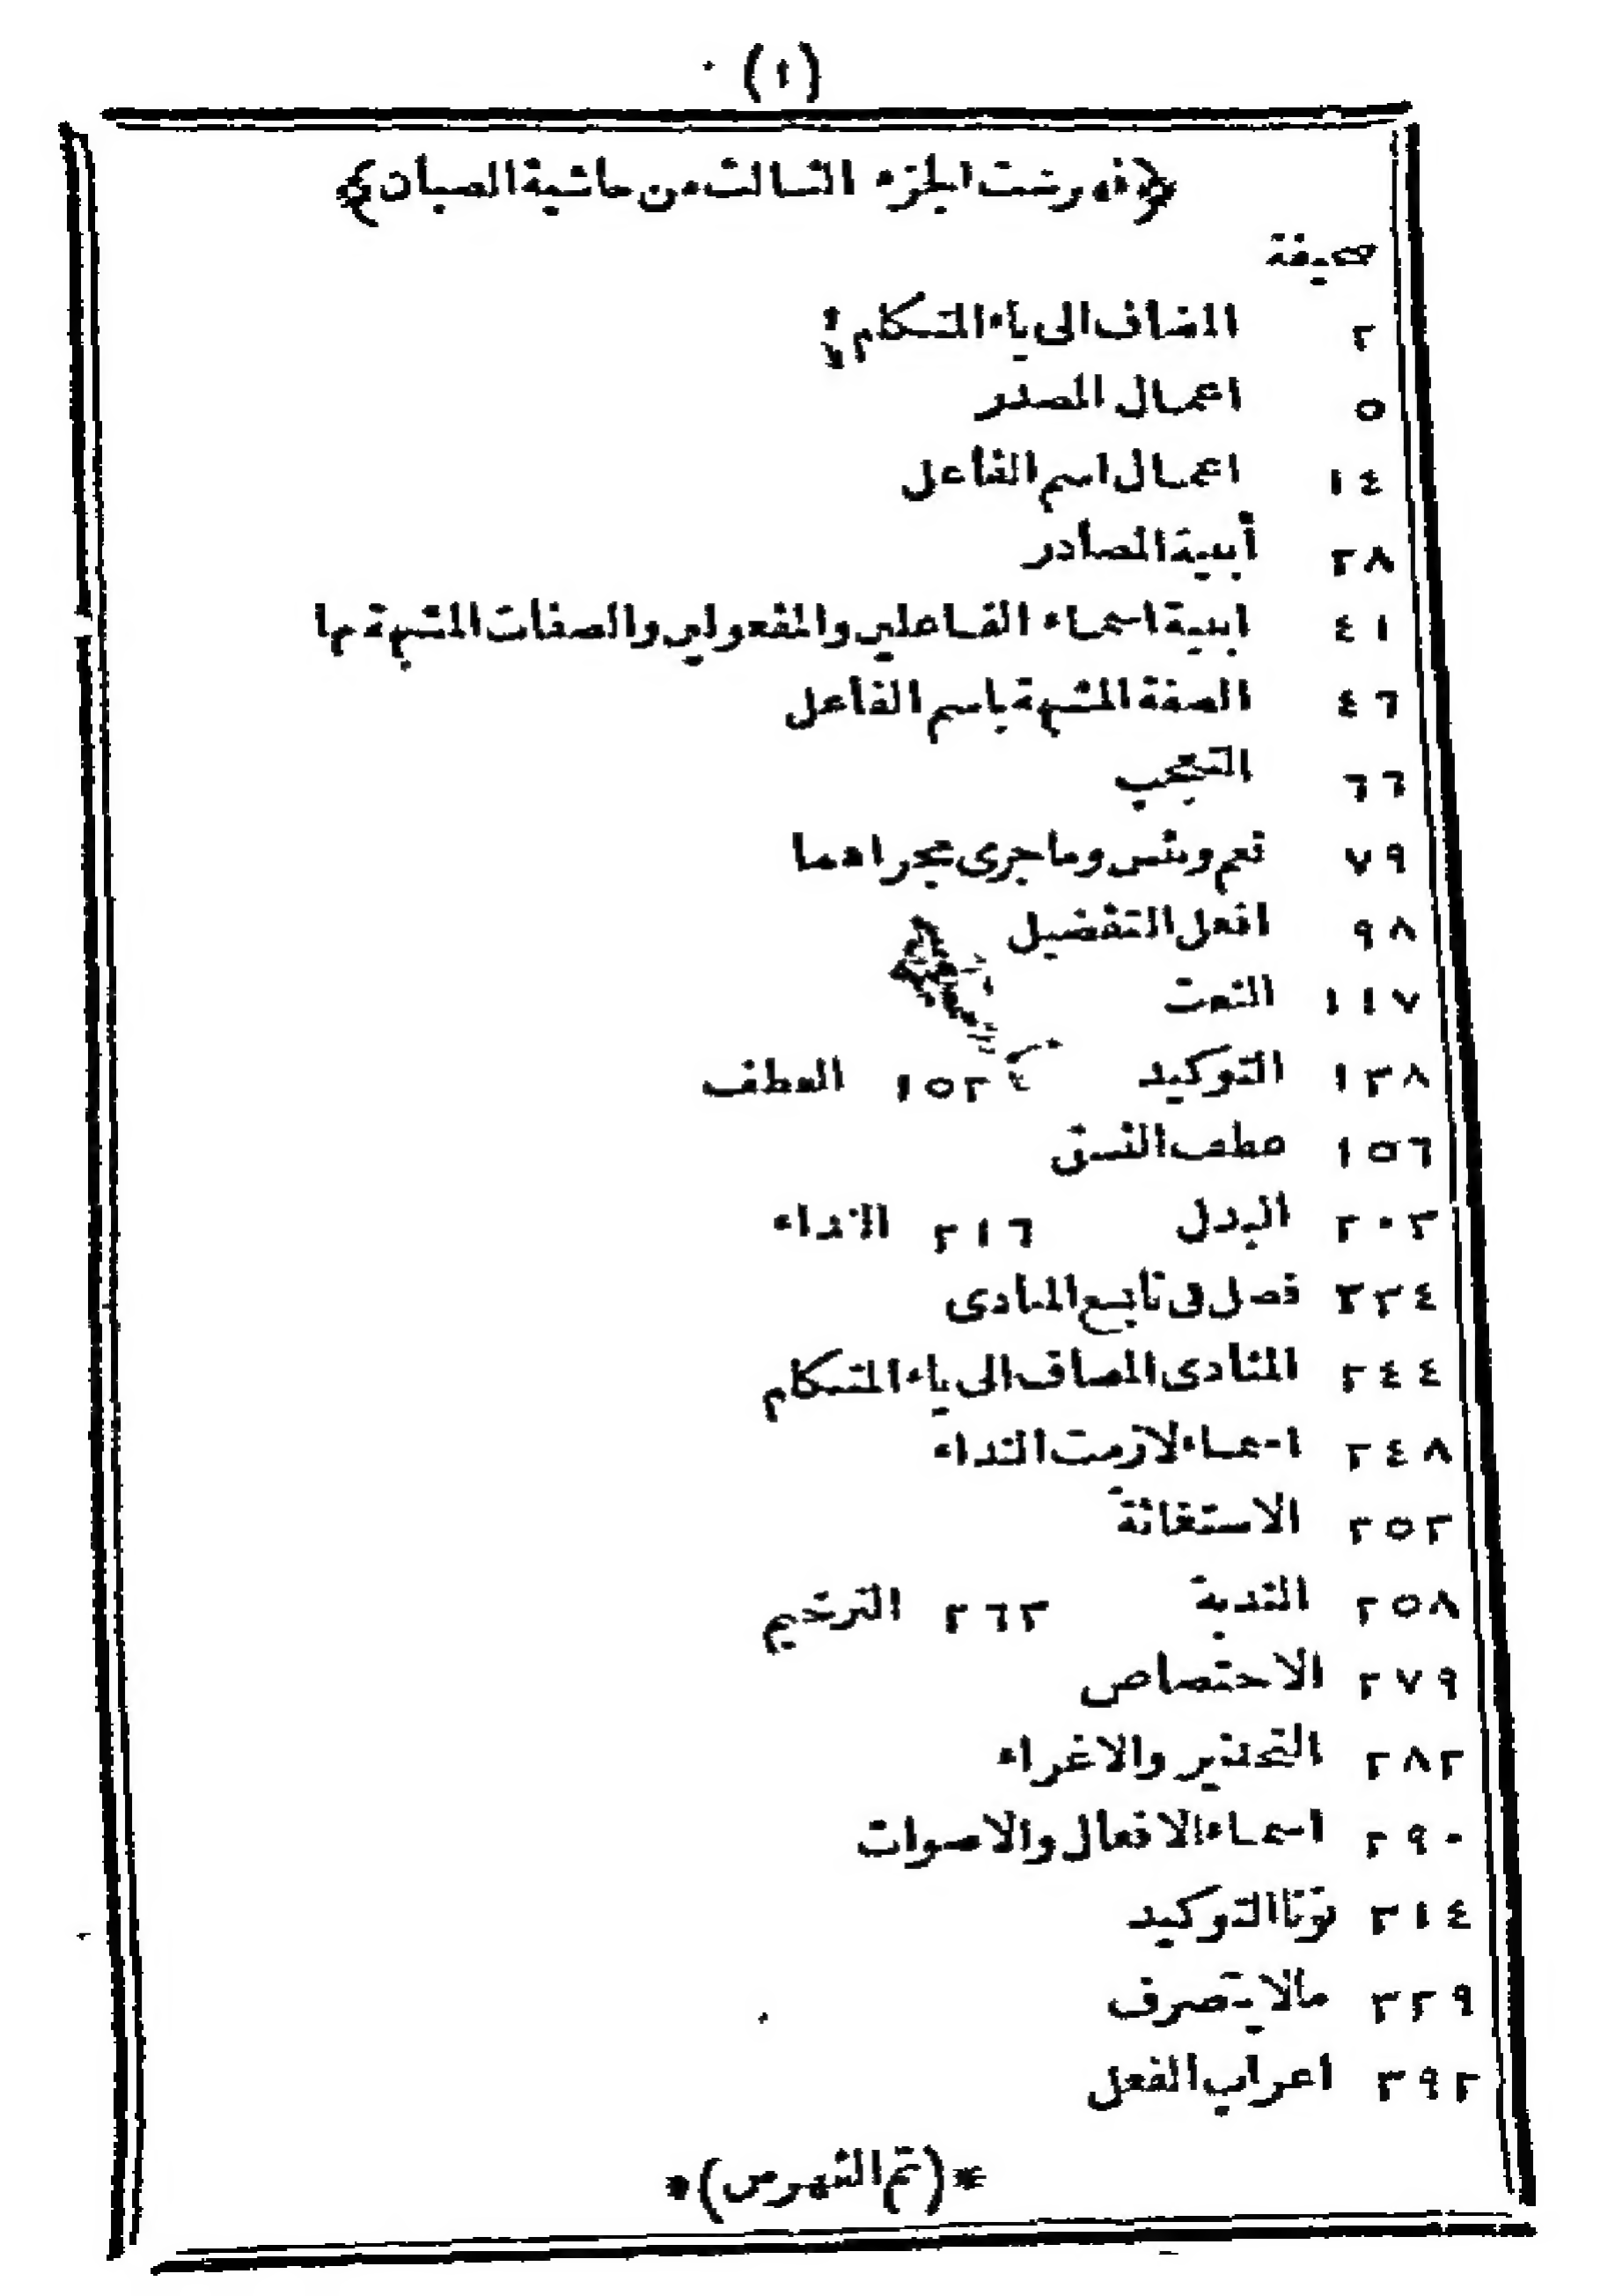 (١)
﴿فهرست الجزء الثالث من حاشية الصبان﴾
صحيفة
٢ المضاف الى ياء المتكلم
٥ اعمال المصدر
١٤ اعمال اسم الفاعل
٢٨ أبنية المصادر
٤١ ابنية اسماء الفاعلين والمفعولين والصفات المشبهة بها
٤٦ الصفة المشبهة باسم الفاعل
٦٦ التعجب
٧٩ نعم وبئس وما جرى مجراهما
٩٨ افعل التفضيل
١١٧ النعت
١٣٨ التوكيد ١٥٢ العطف
١٥٦ عطف النسق
٢٠٣ البدل ٢١٦ النداء
٢٣٤ فصل فى تابع المنادى
٢٤٤ المنادى المضاف الى ياء المتكلم
٢٤٨ اسماء لازمت النداء
٢٥٢ الاستغاثة
٢٥٨ الندبة ٢٦٣ الترخيم
٢٧٩ الاختصاص
٢٨٢ التحذير والاغراء
٢٩٠ اسماء الافعال والاصوات
٣١٤ نونا التوكيد
٣٢٩ مالا ينصرف
٣٩٢ اعراب الفعل
*(تم الفهرس)*